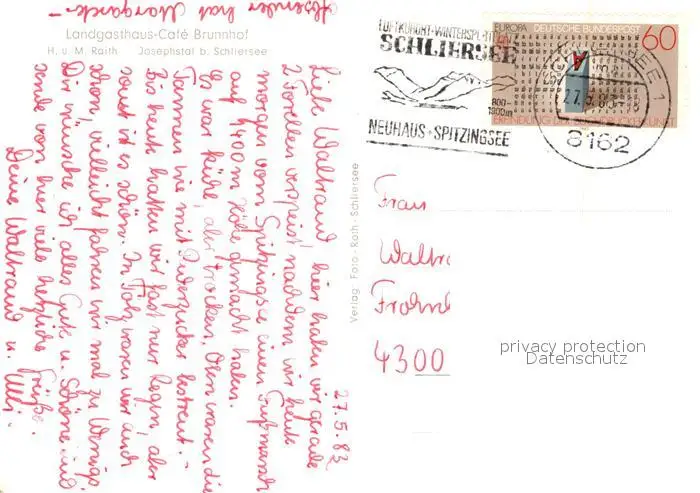 Landgasthaus-Café Brunnhof
H. u. M. Raith Josephstal b. Schliersee
27.5.83
Liebe Waltraud, hier haben wir gerade
2 Forellen verspeist, nachdem wir heute
morgen vom Spitzingsee einen Fußmarsch
auf 1400 m Höhe gemacht haben.
Es war kühl, aber trocken, Oben waren die
Tannen wie mit Puderzucker bestreut. -
Bis heute hatten wir fast nur Regen, aber
sonst ist es schön. In Tölz waren wir auch
schon, vielleicht fahren wir mal zu
Dir wünsche ich alles Gute u. Schöne und
sende von hier viele herzliche Grüße.
Deine Waltraud u. Willi -
Verlag Foto-Rath-Schliersee
LUFTKURORT-WINTERSPORT
SCHLIERSEE
800-
1800m
NEUHAUS-SPITZINGSEE
EUROPA DEUTSCHE BUNDESPOST
60
A
ERFINDUNG DER BUCHDRUCKERKUNST
SCHLIERSEE 1
27.5.83
8162
Frau
Waltr
Frohn
4300
privacy protection
Datenschutz